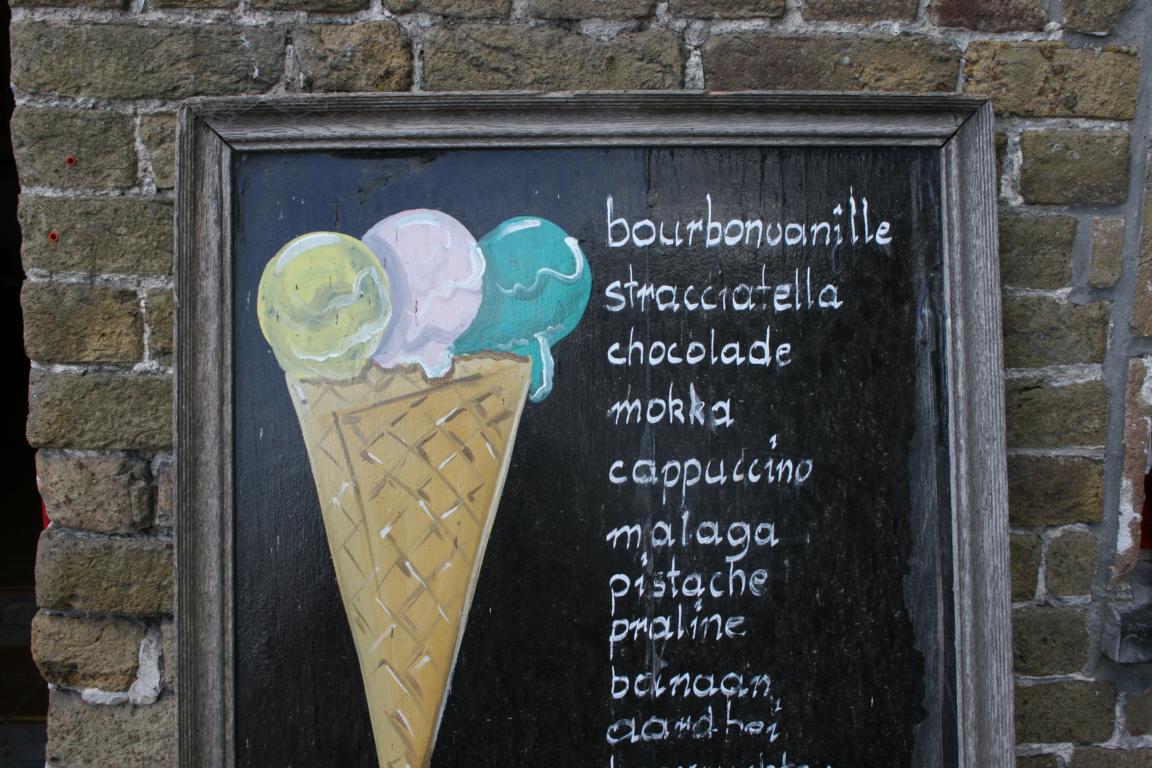 bourbonvanille
stracciatella
chocolade
mokka
cappuccino
malaga
pistache
praline
banaan
aardbei